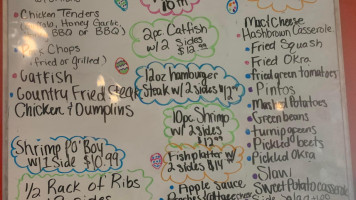 Chicken Tenders
Honey Garlic,
BBQ or BBQ)
Chops
Fried or Grilled)
Catfish
Country Fried Steak
Chicken & Dumplins
Shrimp Po' Boy
w/ 1 Side $10.99
1/2 Rack of Ribs
2pc Catfish
w/ 2 Sides
$12.99
12oz hamburger
Steak w/ 2 sides $12.99
10pc Shrimp
w/ 2 sides
$12.99
Fish platter w/
2 sides $14
Apple sauce
Mac & Cheese
Hashbrown Casserole
Fried Squash
Fried Okra
Fried green tomatoes
Pintos
Mashed Potatoes
Green beans
turnip greens
Pickled beets
Pickled Okra
Slaw
Sweet Potato casserole